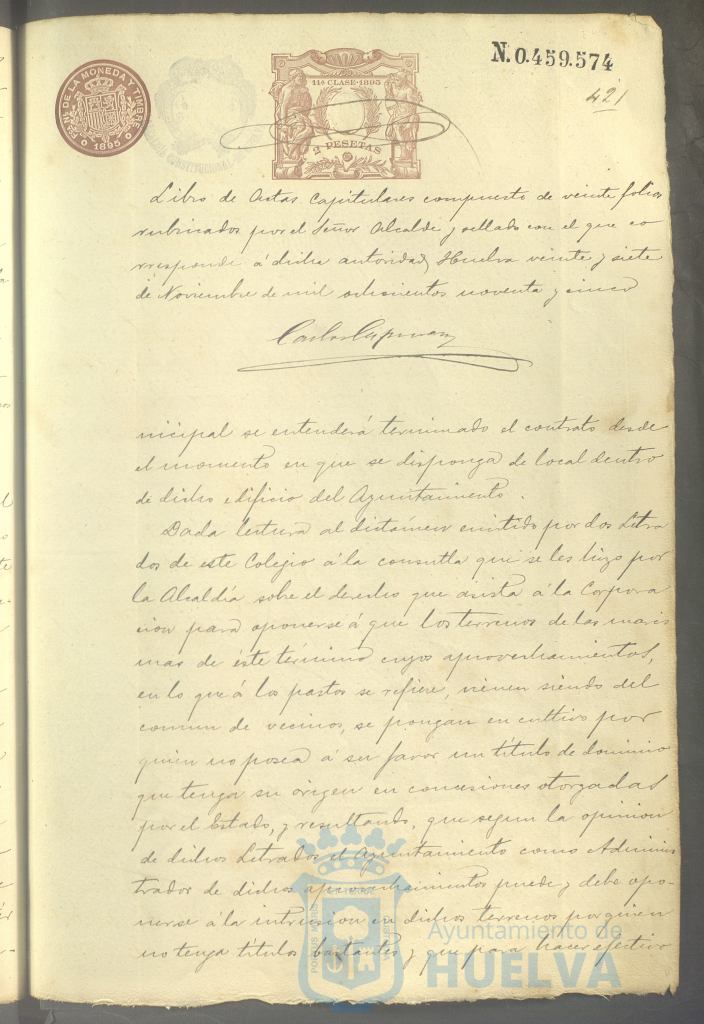 N.0.459.574
421
FCA. NL. DE LA MONEDA Y TIMBRE
1895
11ª CLASE-1895
2 PESETAS
Libro de Actas Capitulares compuesto de veinte folios
rubricados por el Señor Alcalde y sellado con el que co
rresponde á dicha autoridad, Huelva veinte y siete
de Noviembre de mil ochocientos noventa y cinco
nicipal se entenderá terminado el contrato desde
el momento en que se disponga de local dentro
de dicho edificio del Ayuntamiento.
Dada lectura al dictámen emitido por dos Letra
dos de este Colegio á la consulta que se les hizo por
la Alcaldía sobre el derecho que asista á la Corpora
cion para oponerse á que los terrenos de las maris
mas de éste término cuyos aprovechamientos,
en lo que á los pastos se refiere, vienen siendo del
comun de vecinos, se pongan en cultivo por
quien no posea á su favor un título de dominio
que tenga su origen en concesiones otorgadas
por el Estado, y resultando, que segun la opinion
de dichos Letrados el Ayuntamiento como Adminis
trador de dichos aprovechamientos puede y debe opo-
nerse á la intrusion en dichos terrenos por quien
no tenga títulos bastantes y que para hacer efectivo
Ayuntamiento de
HUELVA